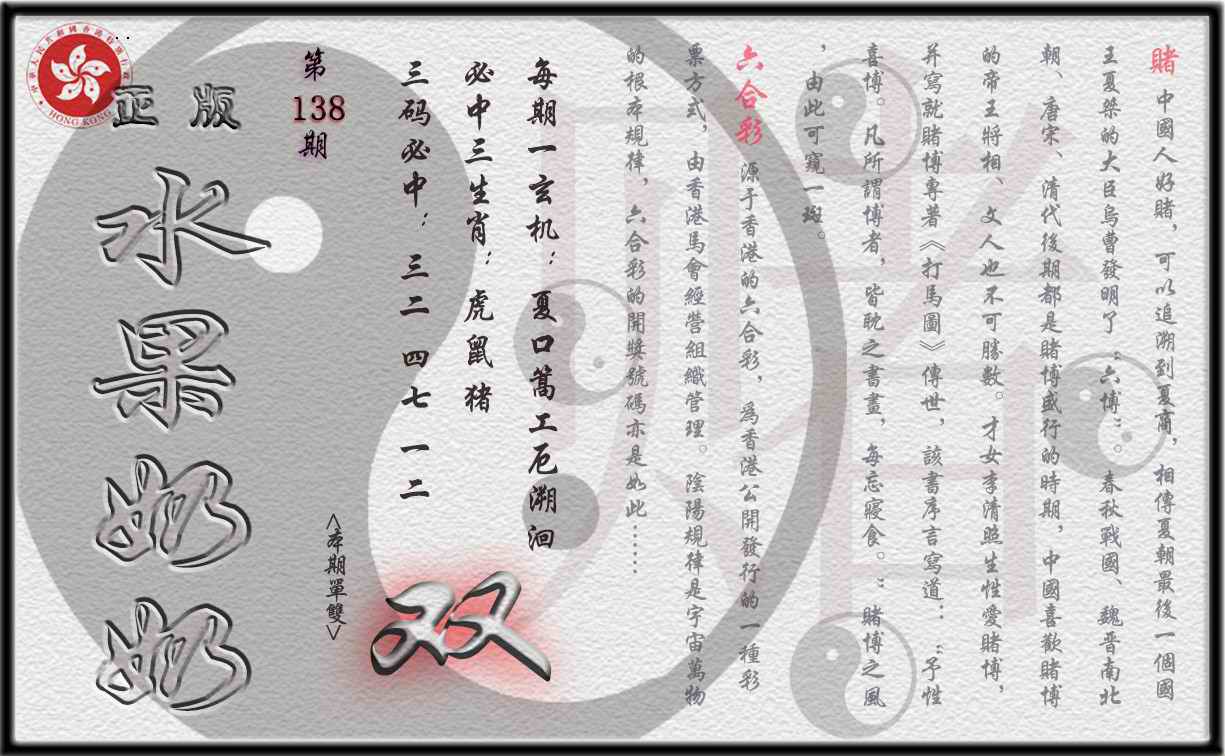 賭 中國人好賭，可以追溯到夏商，相傳夏朝最後一個國
王夏桀的大臣烏曹發明了“六博”。春秋戰國、魏晋南北
朝、唐宋、清代後期都是賭博盛行的時期，中國喜歡賭博
的帝王將相、文人也不可勝數。才女李清照生性愛賭博，
并寫就賭博專著《打馬圖》傳世，該書序言寫道：“予性
喜博。凡所謂博者，皆耽之書晝，每忘寢食。”賭博之風
，由此可窺一斑。
六合彩 源于香港的六合彩，爲香港公開發行的一種彩
票方式，由香港馬會經營組織管理。陰陽規律是宇宙萬物
的根本規律，六合彩的開獎號碼亦是如此……
每期一玄机：夏口篙工厄溯洄
必中三生肖：虎鼠猪
三码必中：三二 四七 一二
<本期單雙>
双
第
138
期
正版
水果奶奶
中華人民共和國香港特別行政區
HONG KONG